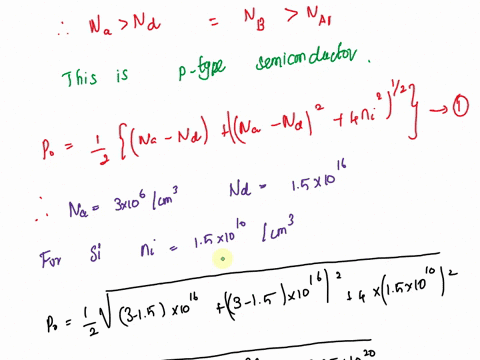 ∴ Na > Nd = NB > NAs
This is p-type semiconductor.
Po = 1/2 {(Na - Nd) + ((Na - Nd)^2 + 4ni^2)^1/2} → ①
∴ Na = 3x10^6 /cm^3 Nd = 1.5x10^16
For Si ni = 1.5x10^10 /cm^3
Po = 1/2 √(3-1.5)x10^16 + ((3-1.5)x10^16)^2 + 4x(1.5x10^10)^2